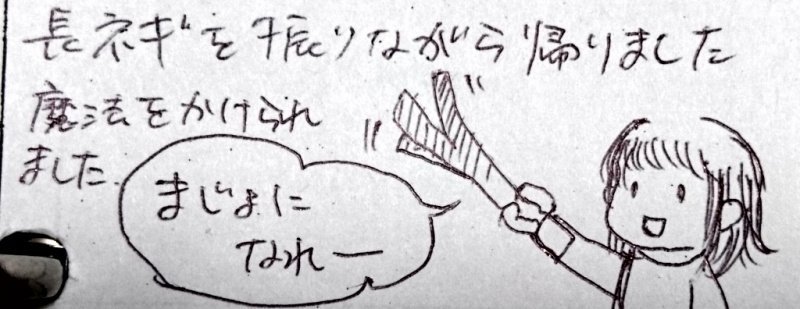 長ネギを振りながら帰りました
魔法をかけられ
ました.
まじょに
なれー